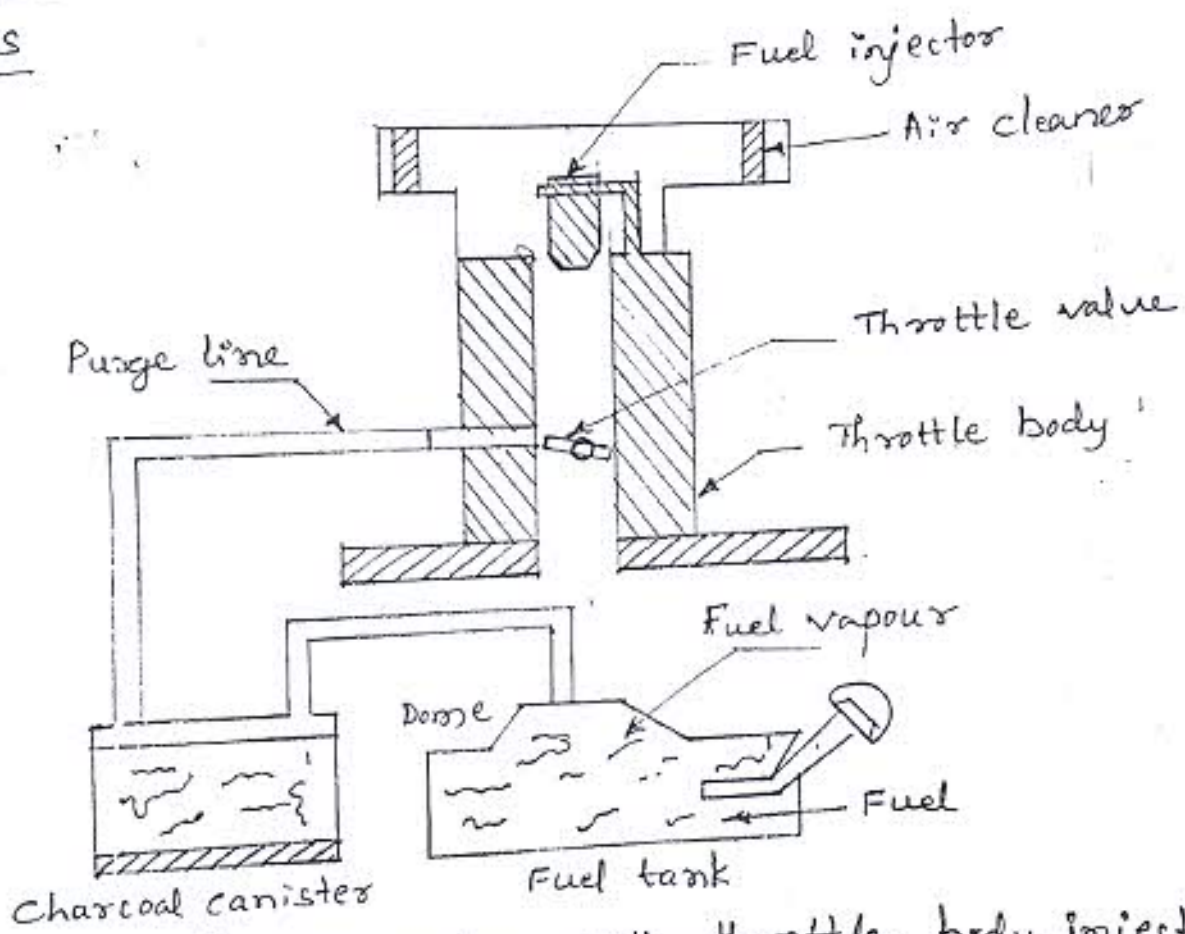 s
Fuel injector
Air cleaner
Throttle value
Purge line
Throttle body
Fuel vapour
Dome
Fuel
Fuel tank
Charcoal canister
throttle body inject